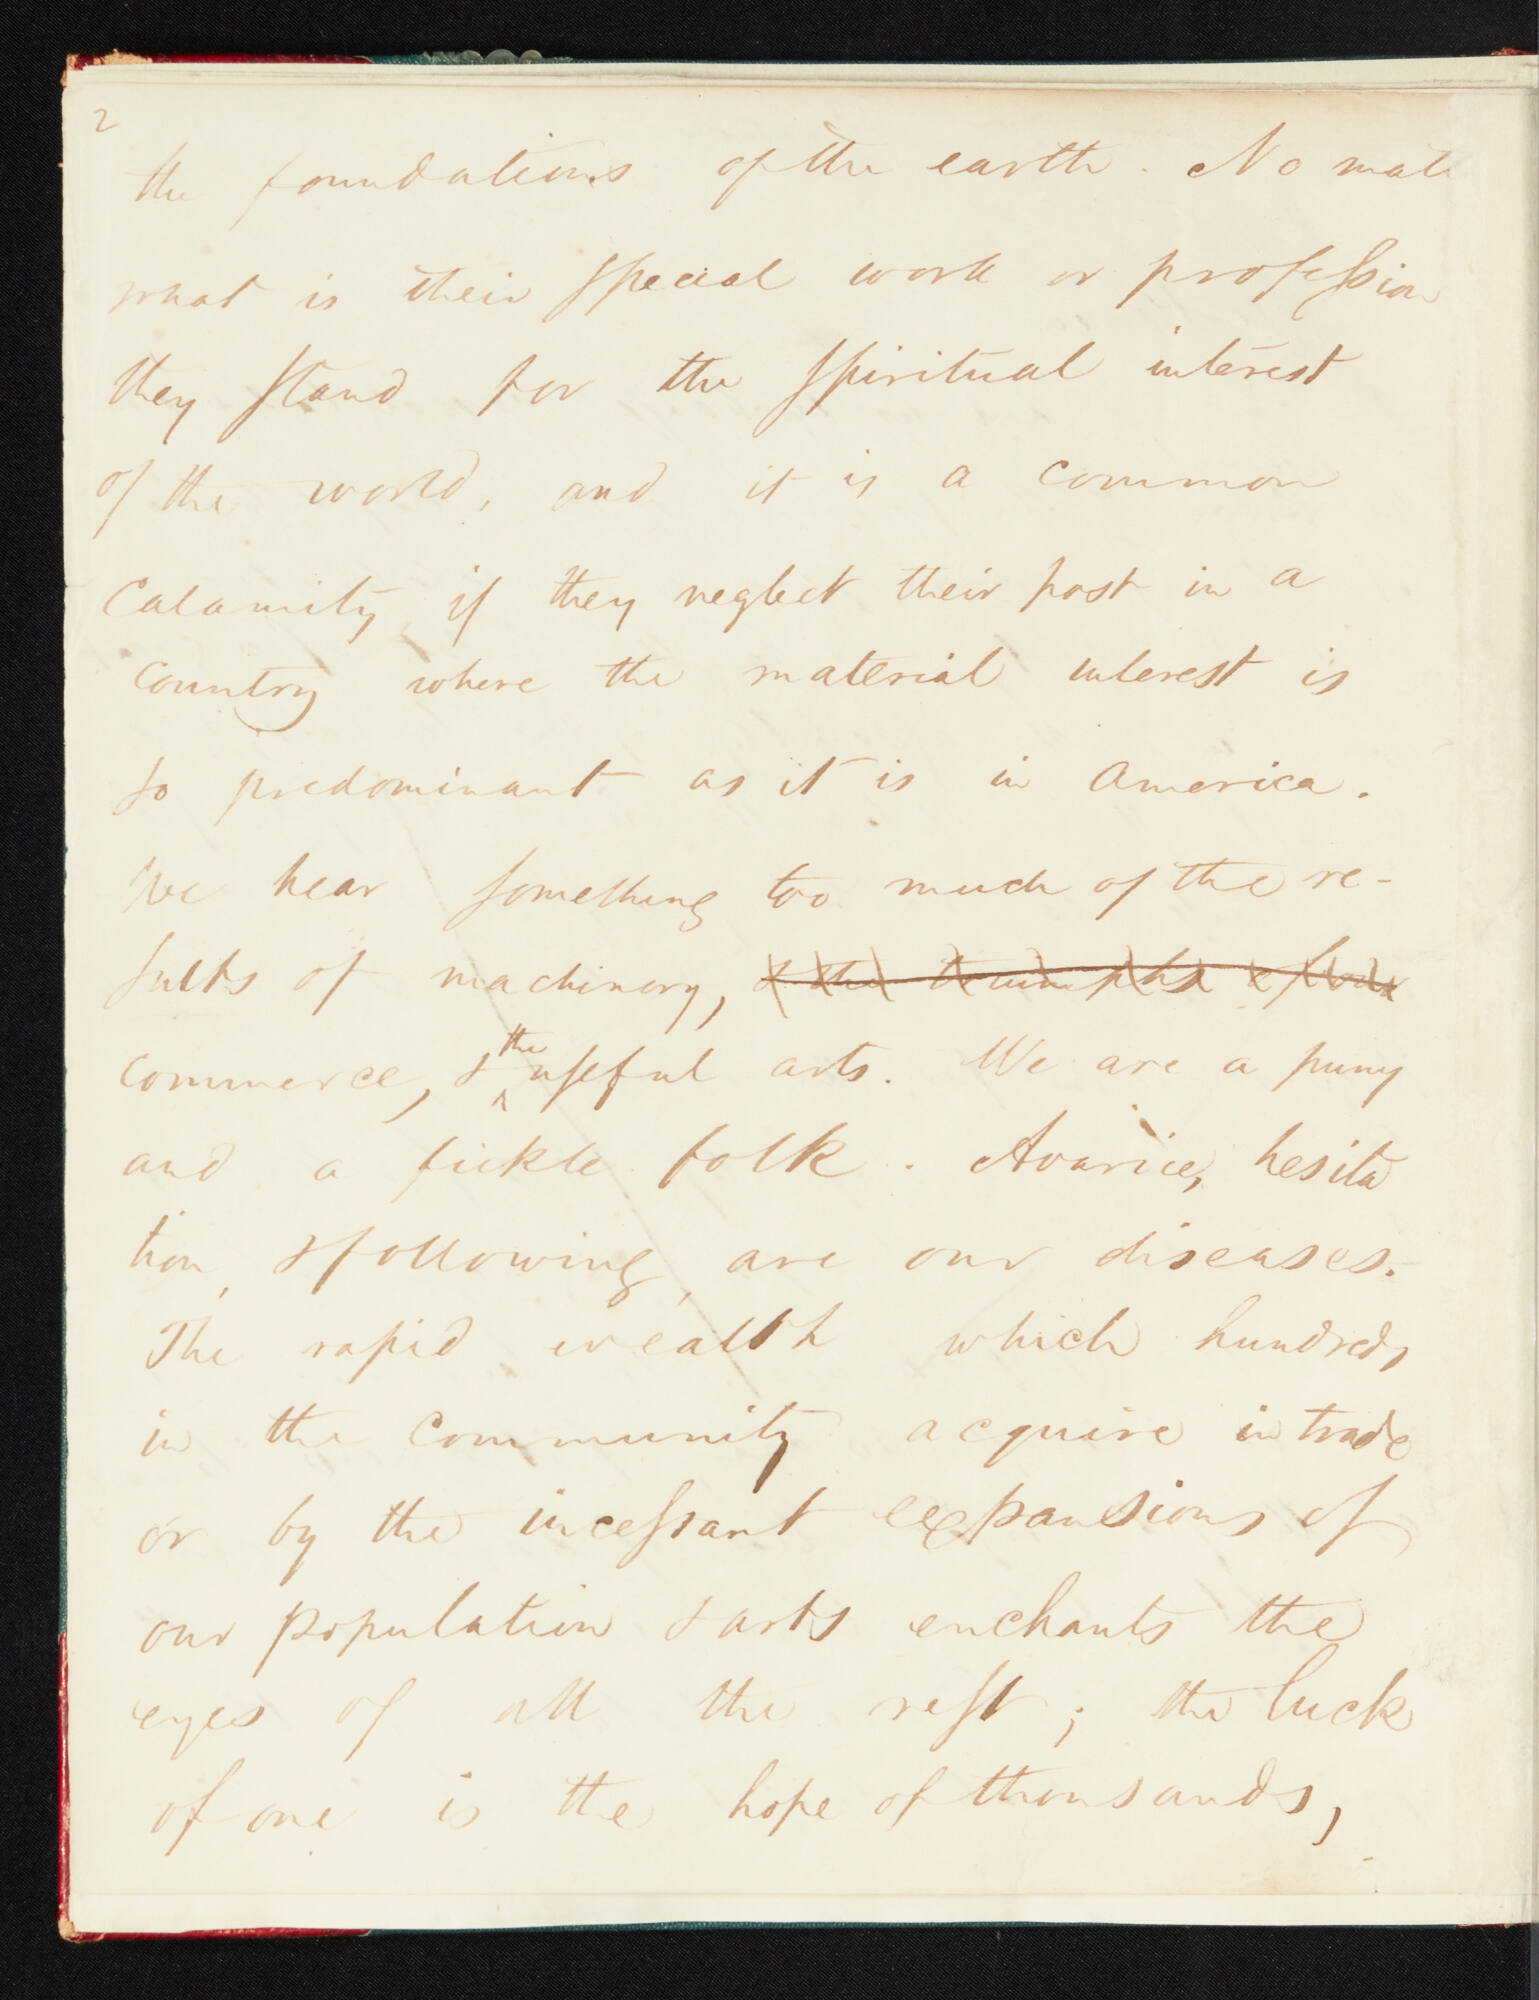 2
the foundations of the earth. No mat
what is their special work or profession
they stand for the spiritual interest
of the world, and it is a common
calamity if they neglect their post in a
country where the material interest is
so predominant as it is in America.
We hear something too much of the re-
sults of machinery, & the triumphs of
commerce, & the useful arts. We are a puny
and a fickle folk. Avarice, hesita
tion, & following, are our diseases.
The rapid wealth which hundreds
in the community acquire in trade
or by the incessant expansions of
our population & arts enchants the
eyes of all the rest; the luck
of one is the hope of thousands,